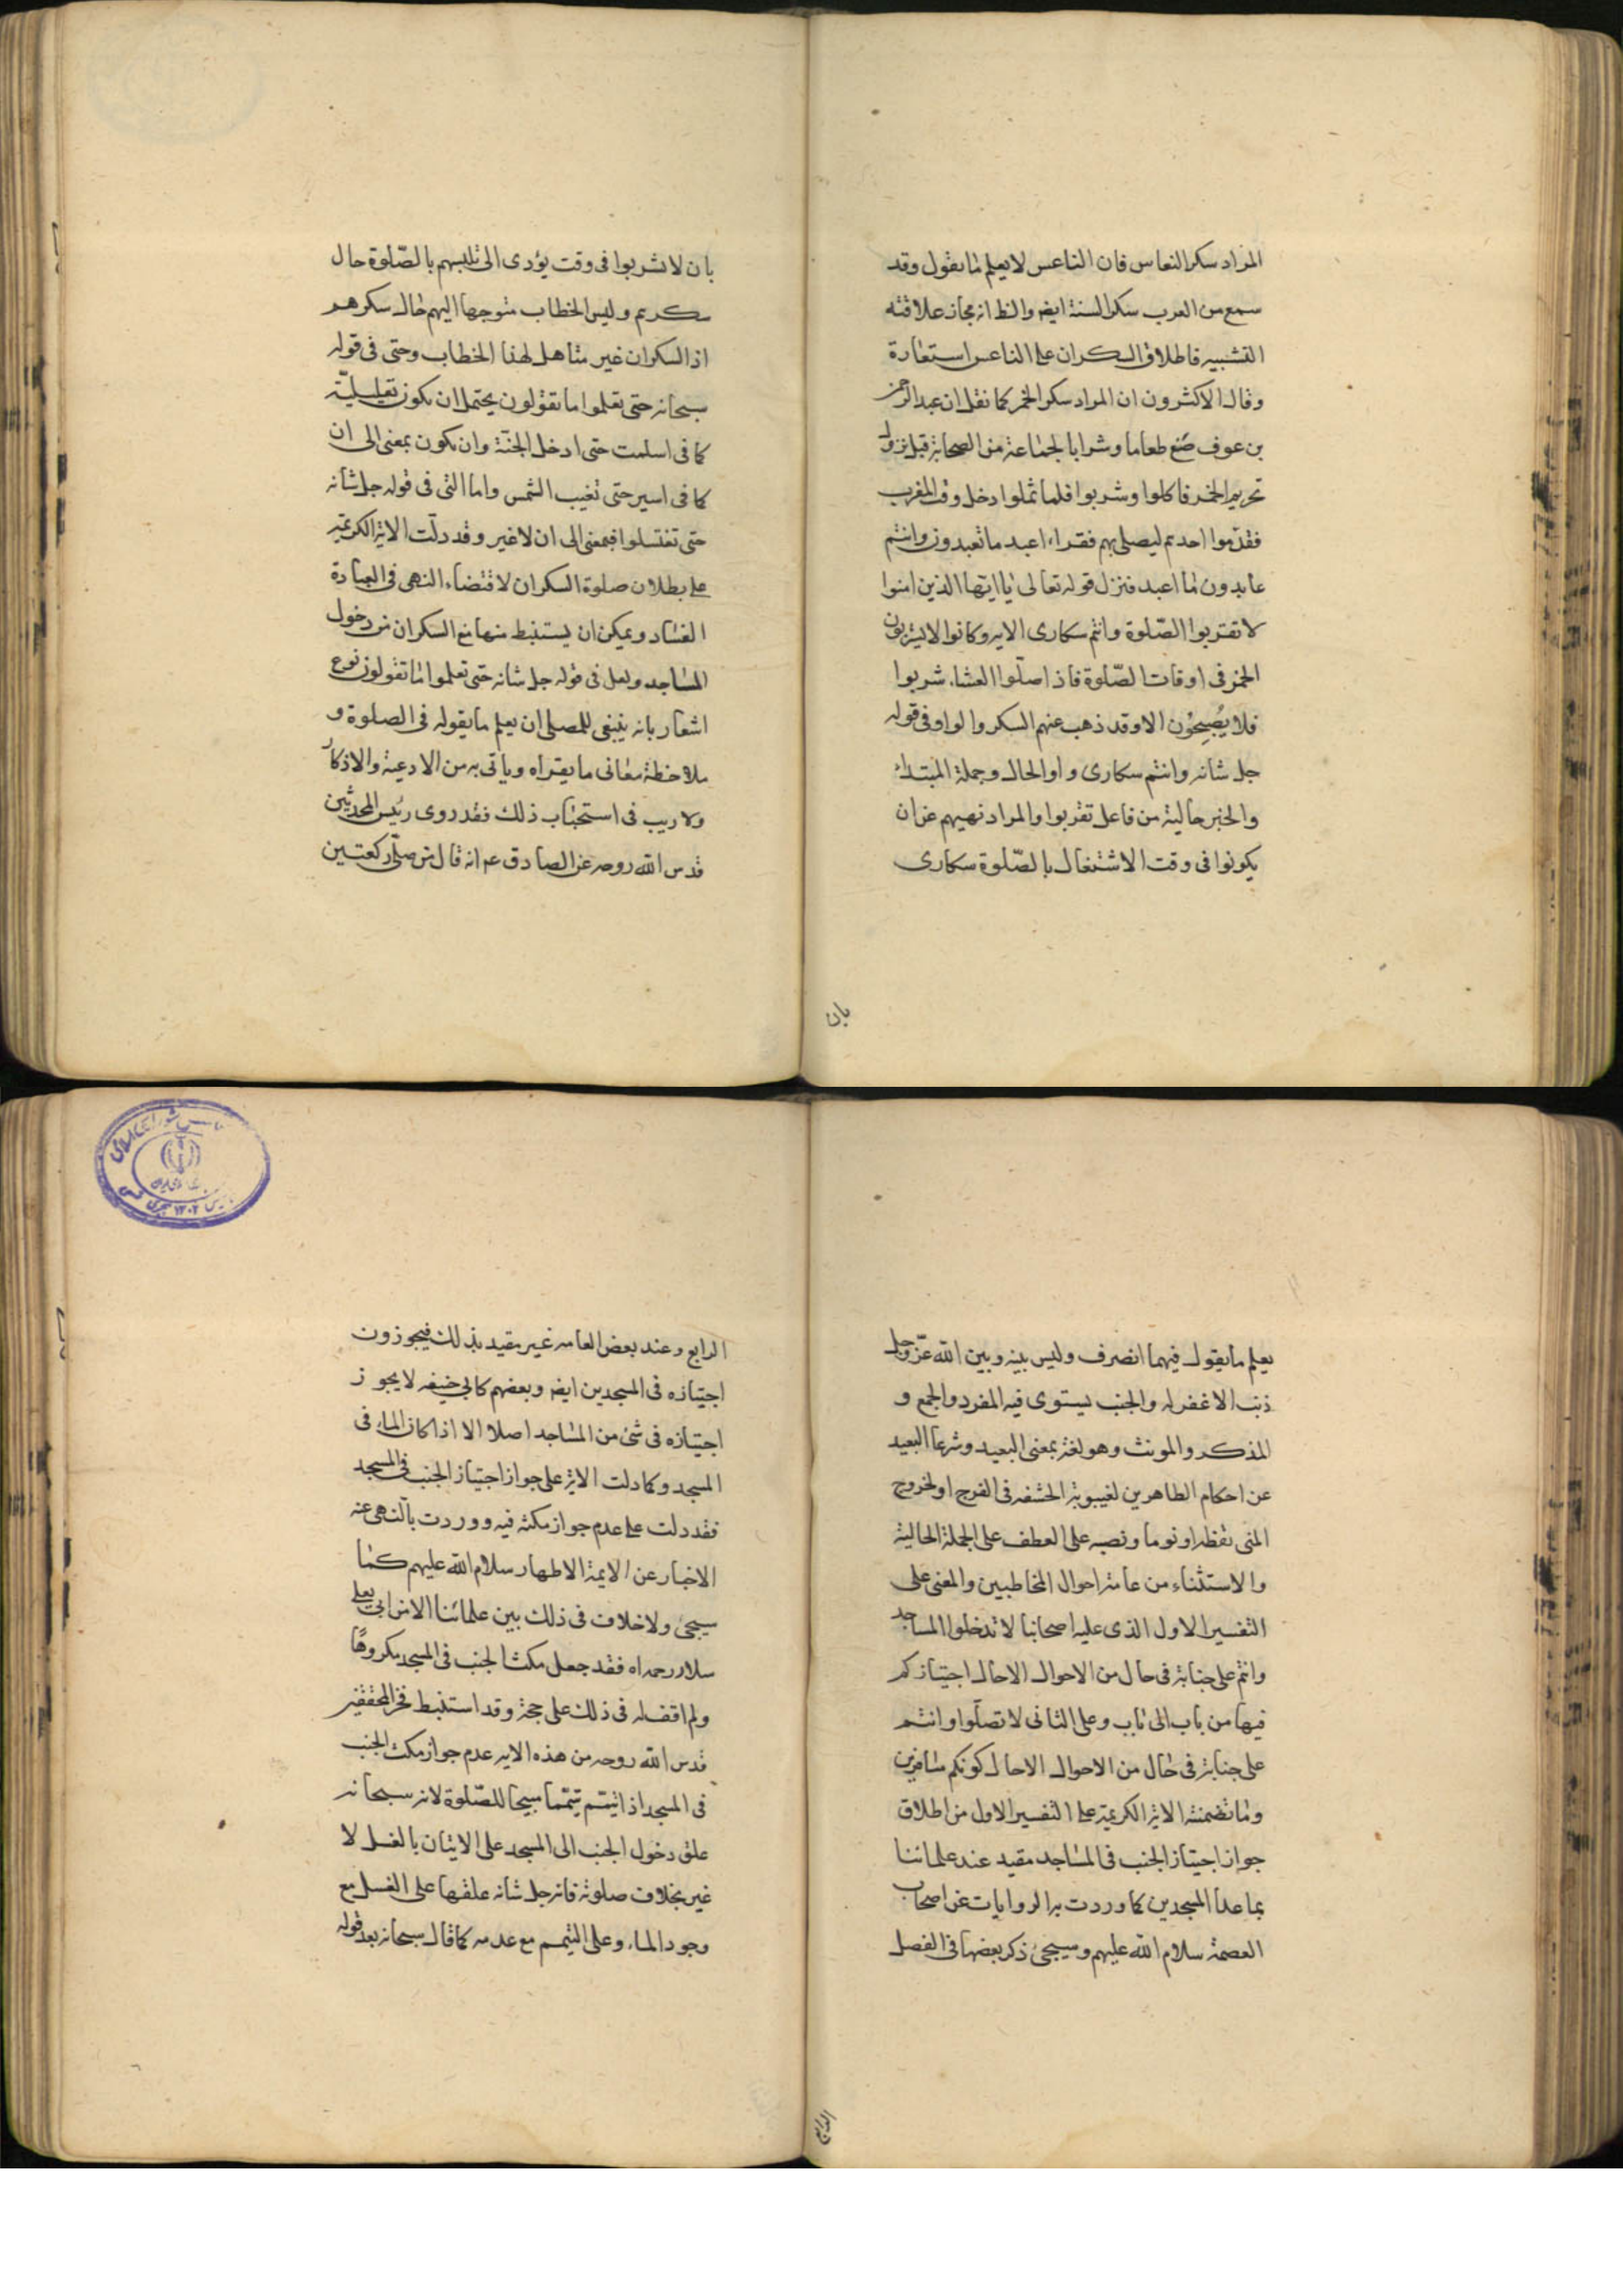 المراد سكر النعاس فان الناعس لا يعلم ما يقول وقد
سمع من العرب سكر السنة ايضا والظ انه مجاز علاقته
التشبيه فاطلاق السكران على الناعس استعارة
وقال الاكثرون ان المراد سكر الخمر كما نقل ان عبد الرحمن
بن عوف صنع طعاما وشرابا لجماعة من الصحابة قبل نزول
تحريم الخمر فاكلوا وشربوا فلما ثملوا دخل وقت المغرب
فقدموا احدهم ليصلي بهم فقراء اعبد ما تعبدون وانتم
عابدون ما اعبد فنزل قوله تعالى يا ايها الذين امنوا
لا تقربوا الصّلوة وانتم سكارى الايه وكانوا لا يشربون
الخمر فى اوقات الصّلوة فاذا صلّوا العشاء شربوا
فلا يُصبِحُون الا وقد ذهب عنهم السكر والواو فى قوله
جل شانه وانتم سكارى واو الحال وجملة المبتداء
والخبر حالية من فاعل تقربوا والمراد نهيهم عن ان
يكونوا فى وقت الاشتغال بالصّلوة سكارى
بان
بان لا تشربوا فى وقت يؤدى الى تلبسهم بالصّلوة حال
سكرهم وليس الخطاب متوجها اليهم حال سكرهم
اذ السكران غير متاهل لهذا الخطاب وحتى فى قوله
سبحانه حتى تعلموا ما تقولون يحتمل ان تكون تعليليّة
كما فى اسلمت حتى ادخل الجنّة وان تكون بمعنى الى ان
كما فى اسير حتى تغيب الشمس واما التى فى قوله جل شانه
حتى تغتسلوا فبمعنى الى ان لا غير وقد دلّت الاية الكريمة
على بطلان صلوة السكران لاقتضاء النهى فى العبادة
الفساد ويمكن ان يستنبط منها منع السكران من دخول
المساجد ولعل فى قوله جل شانه حتى تعلموا ما تقولون نوع
اشعار بانه ينبغى للمصلى ان يعلم ما يقوله فى الصلوة و
ملاحظة معانى ما يقراه وياتى به من الادعية والاذكار
ولا ريب فى استحباب ذلك فقد روى رئيس المحدثين
قدس الله روحه عن الصادق عم انه قال من صلّى ركعتين
يعلم ما يقول فيهما انصرف وليس بينه وبين الله عزّ وجل
ذنب الا غفر له والجنب يستوى فيه المفرد والجمع و
المذكر والمونث وهو لغة بمعنى البعيد وشرعا البعيد
عن احكام الطاهرين لغيبوبة الحشفه فى الفرج او لخروج
المنى يقظة او نوما ونصبه على العطف على الجملة الحالية
والاستثناء من عامة احوال المخاطبين والمعنى على
التفسير الاول الذى عليه اصحابنا لا تدخلوا المساجد
وانتم على جنابة فى حال من الاحوال الا حال اجتيازكم
فيها من باب الى باب وعلى الثانى لا تصلّوا وانتم
على جنابة فى حال من الاحوال الا حال كونكم مسافرين
وما تضمنته الاية الكريمة على التفسير الاول من اطلاق
جواز اجتياز الجنب فى المساجد مقيد عند علمائنا
بما عدا المسجدين كما وردت به الروايات عن اصحاب
العصمة سلام الله عليهم وسيجئ ذكر بعضها فى الفصل
الرابع
الرابع وعند بعض العامه غير مقيد بذلك فيجوزون
اجتيازه فى المسجدين ايضا وبعضهم كابى حنيفه لا يجوز
اجتيازه فى شئ من المساجد اصلا الا اذا كان الماء فى
المسجد وكما دلت الاية على جواز اجتياز الجنب فى المسجد
فقد دلت على عدم جواز مكثه فيه ووردت بالنهى عنه
الاخبار عن الايمة الاطهار سلام الله عليهم كما
سيجئ ولا خلاف فى ذلك بين علمائنا الا من ابى يعلى
سلار رحمه اه فقد جعل مكث الجنب فى المسجد مكروهًا
ولم اقف له فى ذلك على حجة وقد استنبط فخر المحققين
قدس الله روحه من هذه الايه عدم جواز مكث الجنب
فى المسجد اذا تيمم تيمّما مبيحا للصّلوة لانه سبحانه
علق دخول الجنب الى المسجد على الاتيان بالغسل لا
غير بخلاف صلوته فانه جل شانه علقها على الغسل مع
وجود الماء وعلى التيمم مع عدمه كما قال سبحانه بعد قوله